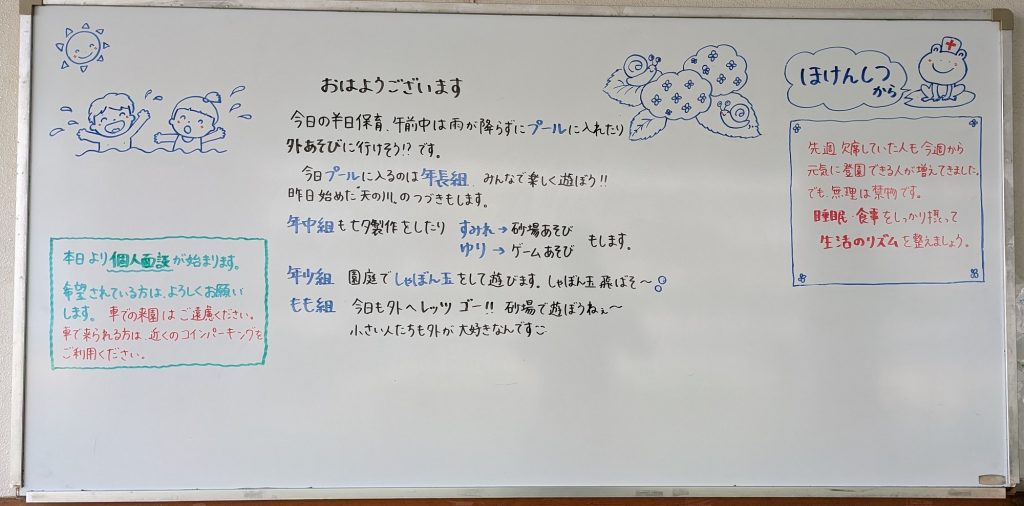 おはようございます
今日の半日保育、午前中は雨が降らずにプールに入れたり
外あそびに行けそう!?です。
今日プールに入るのは年長組、みんなで楽しく遊ぼう!!
昨日始めた"天の川"のつづきもします。
年中組も七夕製作をしたり すみれ→砂場あそび
ゆり→ゲームあそび もします。
年少組 園庭でしゃぼん玉をして遊びます。しゃぼん玉飛ばそ〜
もも組 今日も外へレッツゴー!! 砂場で遊ぼうねぇ〜
小さい人たちも外が大好きなんです
本日より個人面談が始まります。
希望されている方は、よろしくお願い
します。車での来園はご遠慮ください。
車で来られる方は、近くのコインパーキングを
ご利用ください。
ほけんしつ
から
先週欠席していた人も今週から
元気に登園できる人が増えてきました。
でも、無理は禁物です。
睡眠・食事をしっかり摂って
生活のリズムを整えましょう。